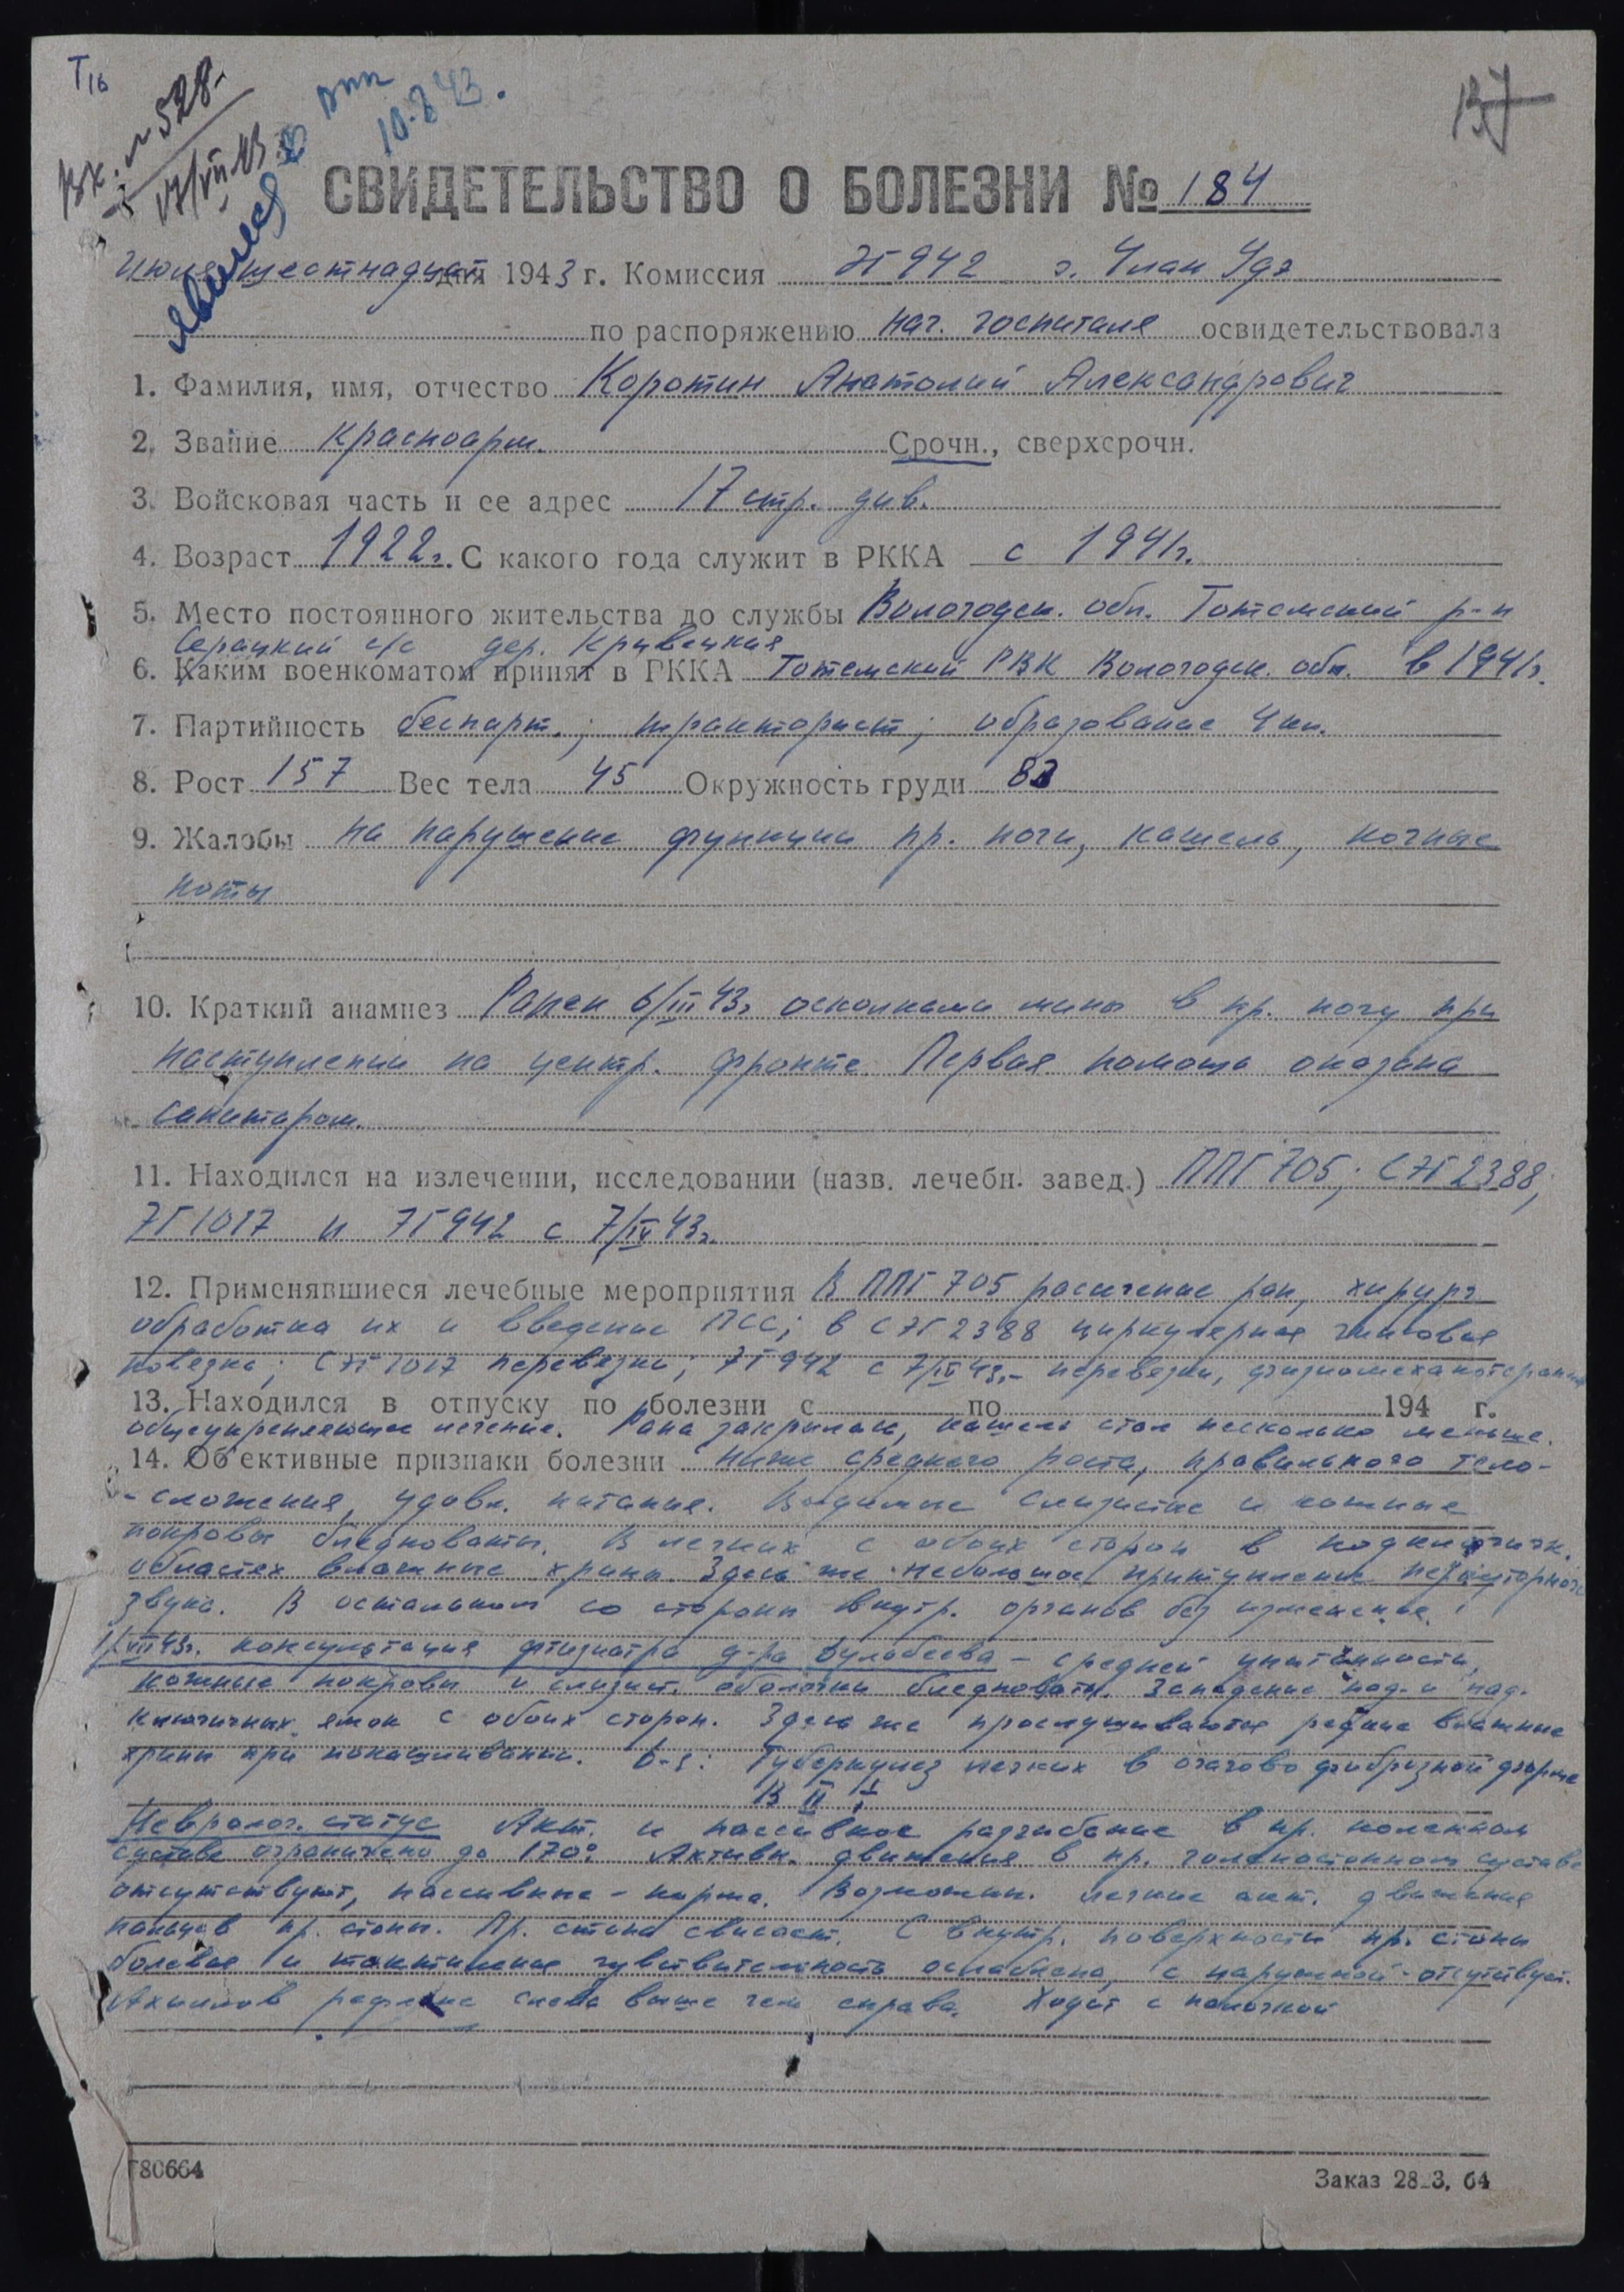 Т16
Вх. № 528.
17/VII 43
Явился
10.8 43.
137
СВИДЕТЕЛЬСТВО О БОЛЕЗНИ № 184
Июля шестнадцат дня 1943 г. Комиссия ЭГ 942 г. Улан Удэ
по распоряжению нач. госпиталя освидетельствовала
1. Фамилия, имя, отчество Коротин Анатолий Александрович
2. Звание красноарм. Срочн., сверхсрочн.
3. Войсковая часть и ее адрес 17 стр. див.
4. Возраст 1922 г. С какого года служит в РККА с 1941 г.
5. Место постоянного жительства до службы Вологодск. обл. Тотемский р-н
с/с дер. Кривецкая
6. Каким военкоматом принят в РККА Тотемский РВК Вологодск. обл. в 1941 г.
7. Партийность беспарт.; тракторист; образование 4 кл.
8. Рост 157 Вес тела 45 Окружность груди 83
9. Жалобы на нарушение функции пр. ноги, кашель, ночные
поты
10. Краткий анамнез Ранен 6/III 43г осколками мины в пр. ногу при
наступлении на центр. фронте. Первая помощь оказана
санитаром.
11. Находился на излечении, исследовании (назв. лечебн. завед.) ППГ 705; СЭГ 2388;
ЭГ 1017 и ЭГ 942 с 7/IV 43г.
12. Применявшиеся лечебные мероприятия В ППГ 705 рассечение ран, хирург
обработка их и введение ПСС; в СЭГ 2388 циркулярная гипсовая
повязка; СЭГ 1017 перевязки; ЭГ 942 с 7/IV 43г.- перевязки, физиомеханотерапия
13. Находился в отпуску по болезни с по 194 г.
общеукрепляющее лечение. Рана закрылась, кашель стал несколько меньше.
14. Об'ективные признаки болезни ниже среднего роста, правильного тело-
-сложения, удовл. питания. Видимые слизистые и кожные
покровы бледноваты. В легких с обоих сторон в подключичн.
областях влажные хрипы. Здесь же небольшое притупление перкуторного
звука. В остальном со стороны внутр. органов без изменение.
1/VII 43г. консультация фтизиатра д-ра - средней упитанности,
кожные покровы и слизист. оболочки бледноваты. Западение над- и под-
ключичных ямок с обоих сторон. Здесь же прослушиваются редкие влажные
хрипы при покашливании. D-s: Туберкулез легких в очагово фиброзной форме
В II
Невролог. статус Акт. и пассивное разгибание в пр. коленном
суставе ограничено до 170°. Активн. движения в пр. голеностопном суставе
отсутствуют, пассивные - норма. Возможны легкие акт. движения
пальцев пр. стопы. Пр. стопа свисает. С внутр. поверхности пр. стопы
болевая и тактильная чувствительность ослаблена, с наружной - отсутствует.
Ахиллов рефлекс слева выше чем справа. Ходит с палочкой
Т80664
Заказ 2823. 64